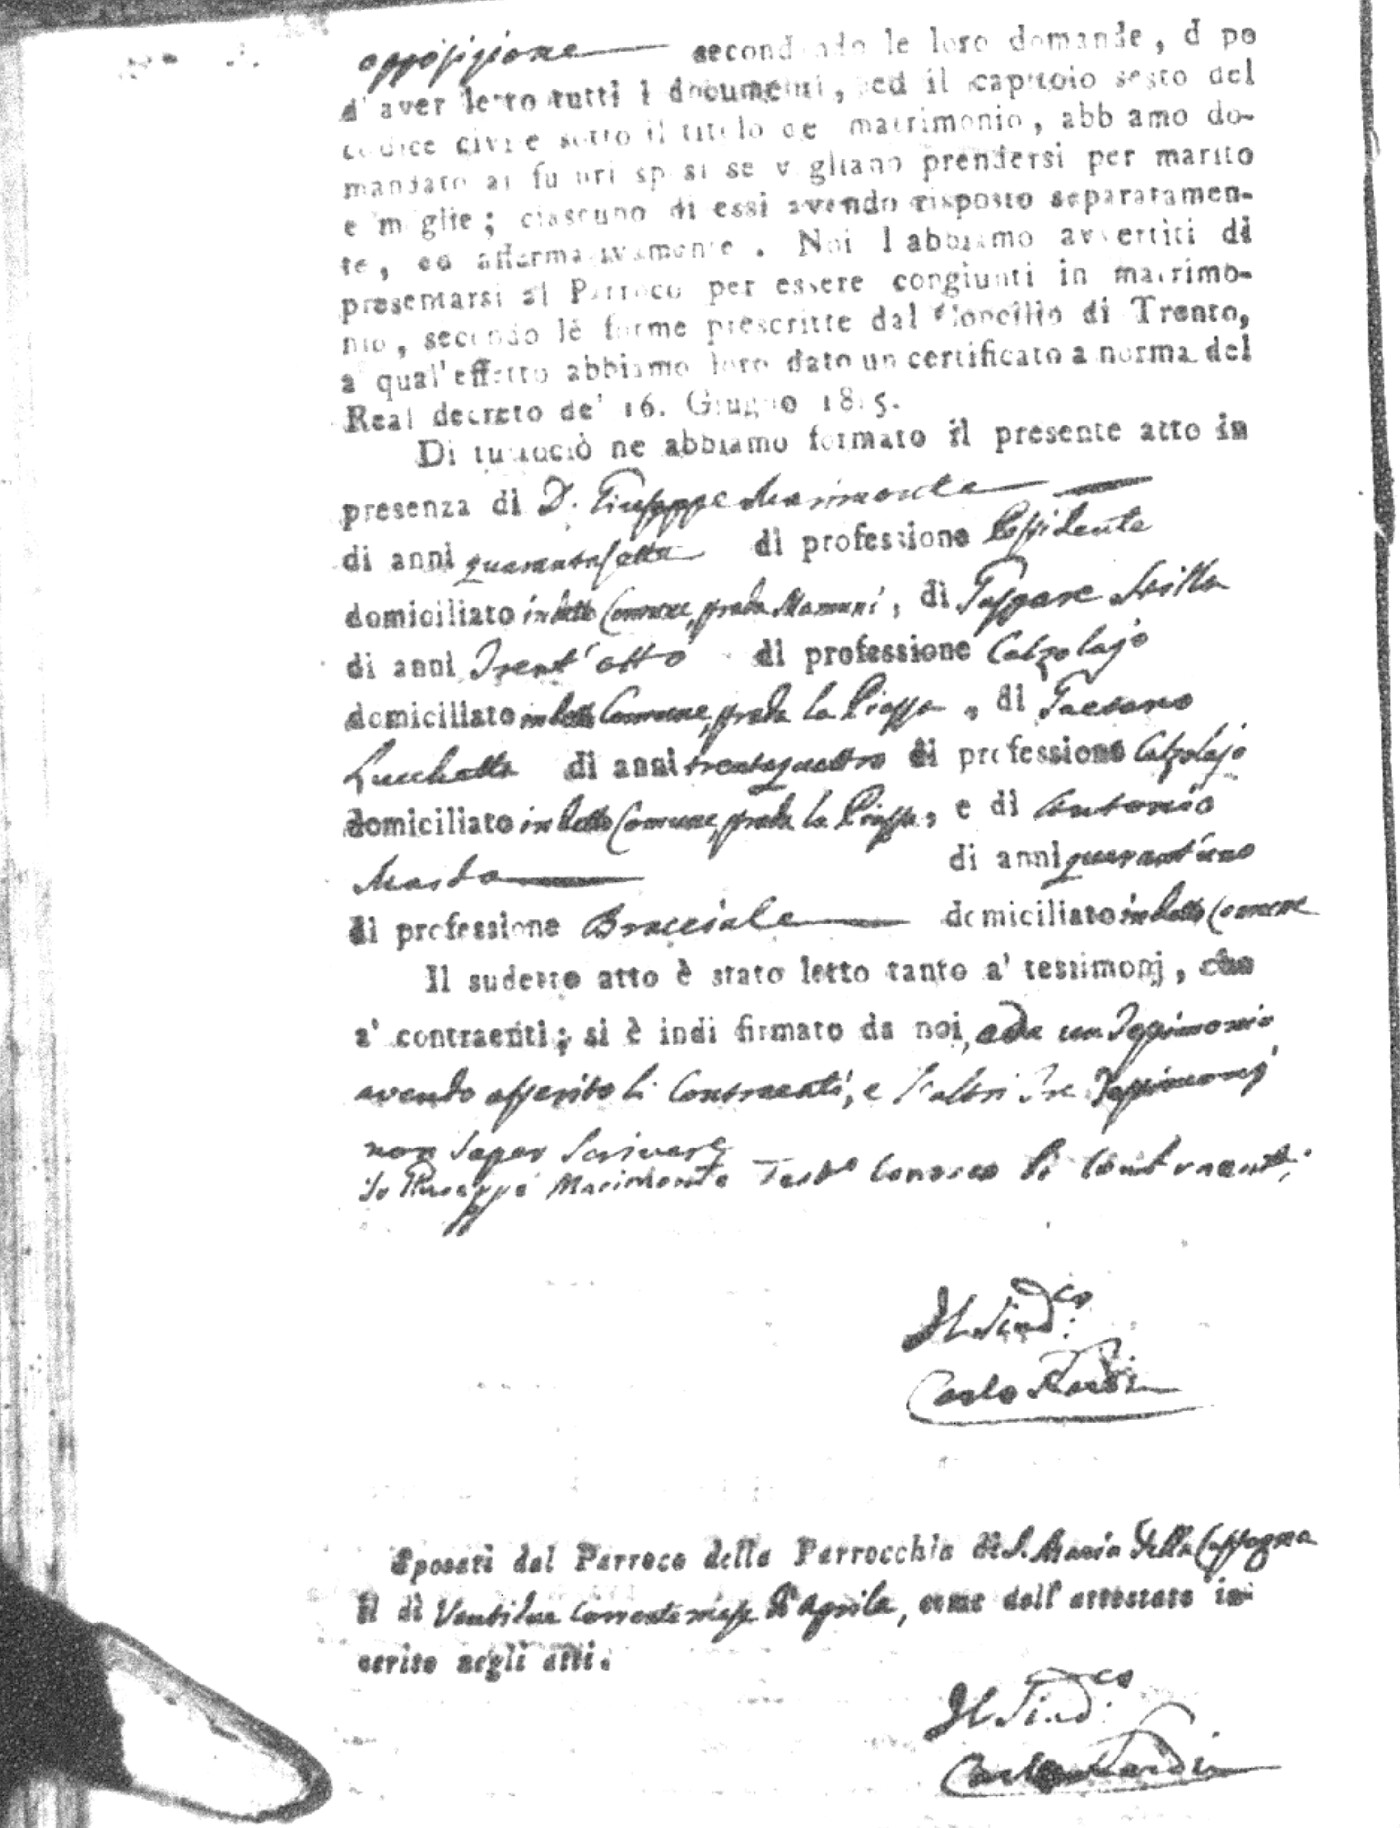 opposizione secondando le loro domande, dopo
d'aver letto tutti i documenti, ed il capitolo sesto del
codice civile sotto il titolo del matrimonio, abbiamo do-
mandato ai futuri sposi se vogliano prendersi per marito
e moglie; ciascuno di essi avendo risposto separatamen-
te, ed affermativamente. Noi l abbiamo avvertiti di
presentarsi al Parroco per essere congiunti in matrimo-
nio, secondo le forme prescritte dal Concilio di Trento,
a qual'effetto abbiamo loro dato un certificato a norma del
Real decreto de' 16. Giugno 1815.
Di tuttociò ne abbiamo formato il presente atto in
presenza di D. Giuseppe Marimonte
di anni quarantasette di professione Possidente
domiciliato in detto Comune, strada Mamuni, di Gaspare Scilla
di anni Trent'otto di professione Calzolajo
domiciliato in detto Comune, strada la Piazza, di Gaetano
Lucchetta di anni trentaquattro di professione Calzolajo
domiciliato in detto Comune, strada la Piazza, e di Antonio
di anni quarant'uno
di professione Bracciale domiciliato in detto Comune
Il sudetto atto è stato letto tanto a' testimonj, che
a' contraenti; si è indi firmato da noi, e da un Testimonio
avendo asserito li Contraenti, e l'altri Tre Testimonj
non saper scrivere
Io Giuseppe Marimonte Testo Conosco li Contraenti
Il Sind.co
Carlo Nardi
Sposati dal Parroco della Parrocchia di S. Maria della
il dì Ventidue corrente mese d'Aprile, come dell' attestato in-
serito negli atti.
Il Sind.co
Carlo Nardi